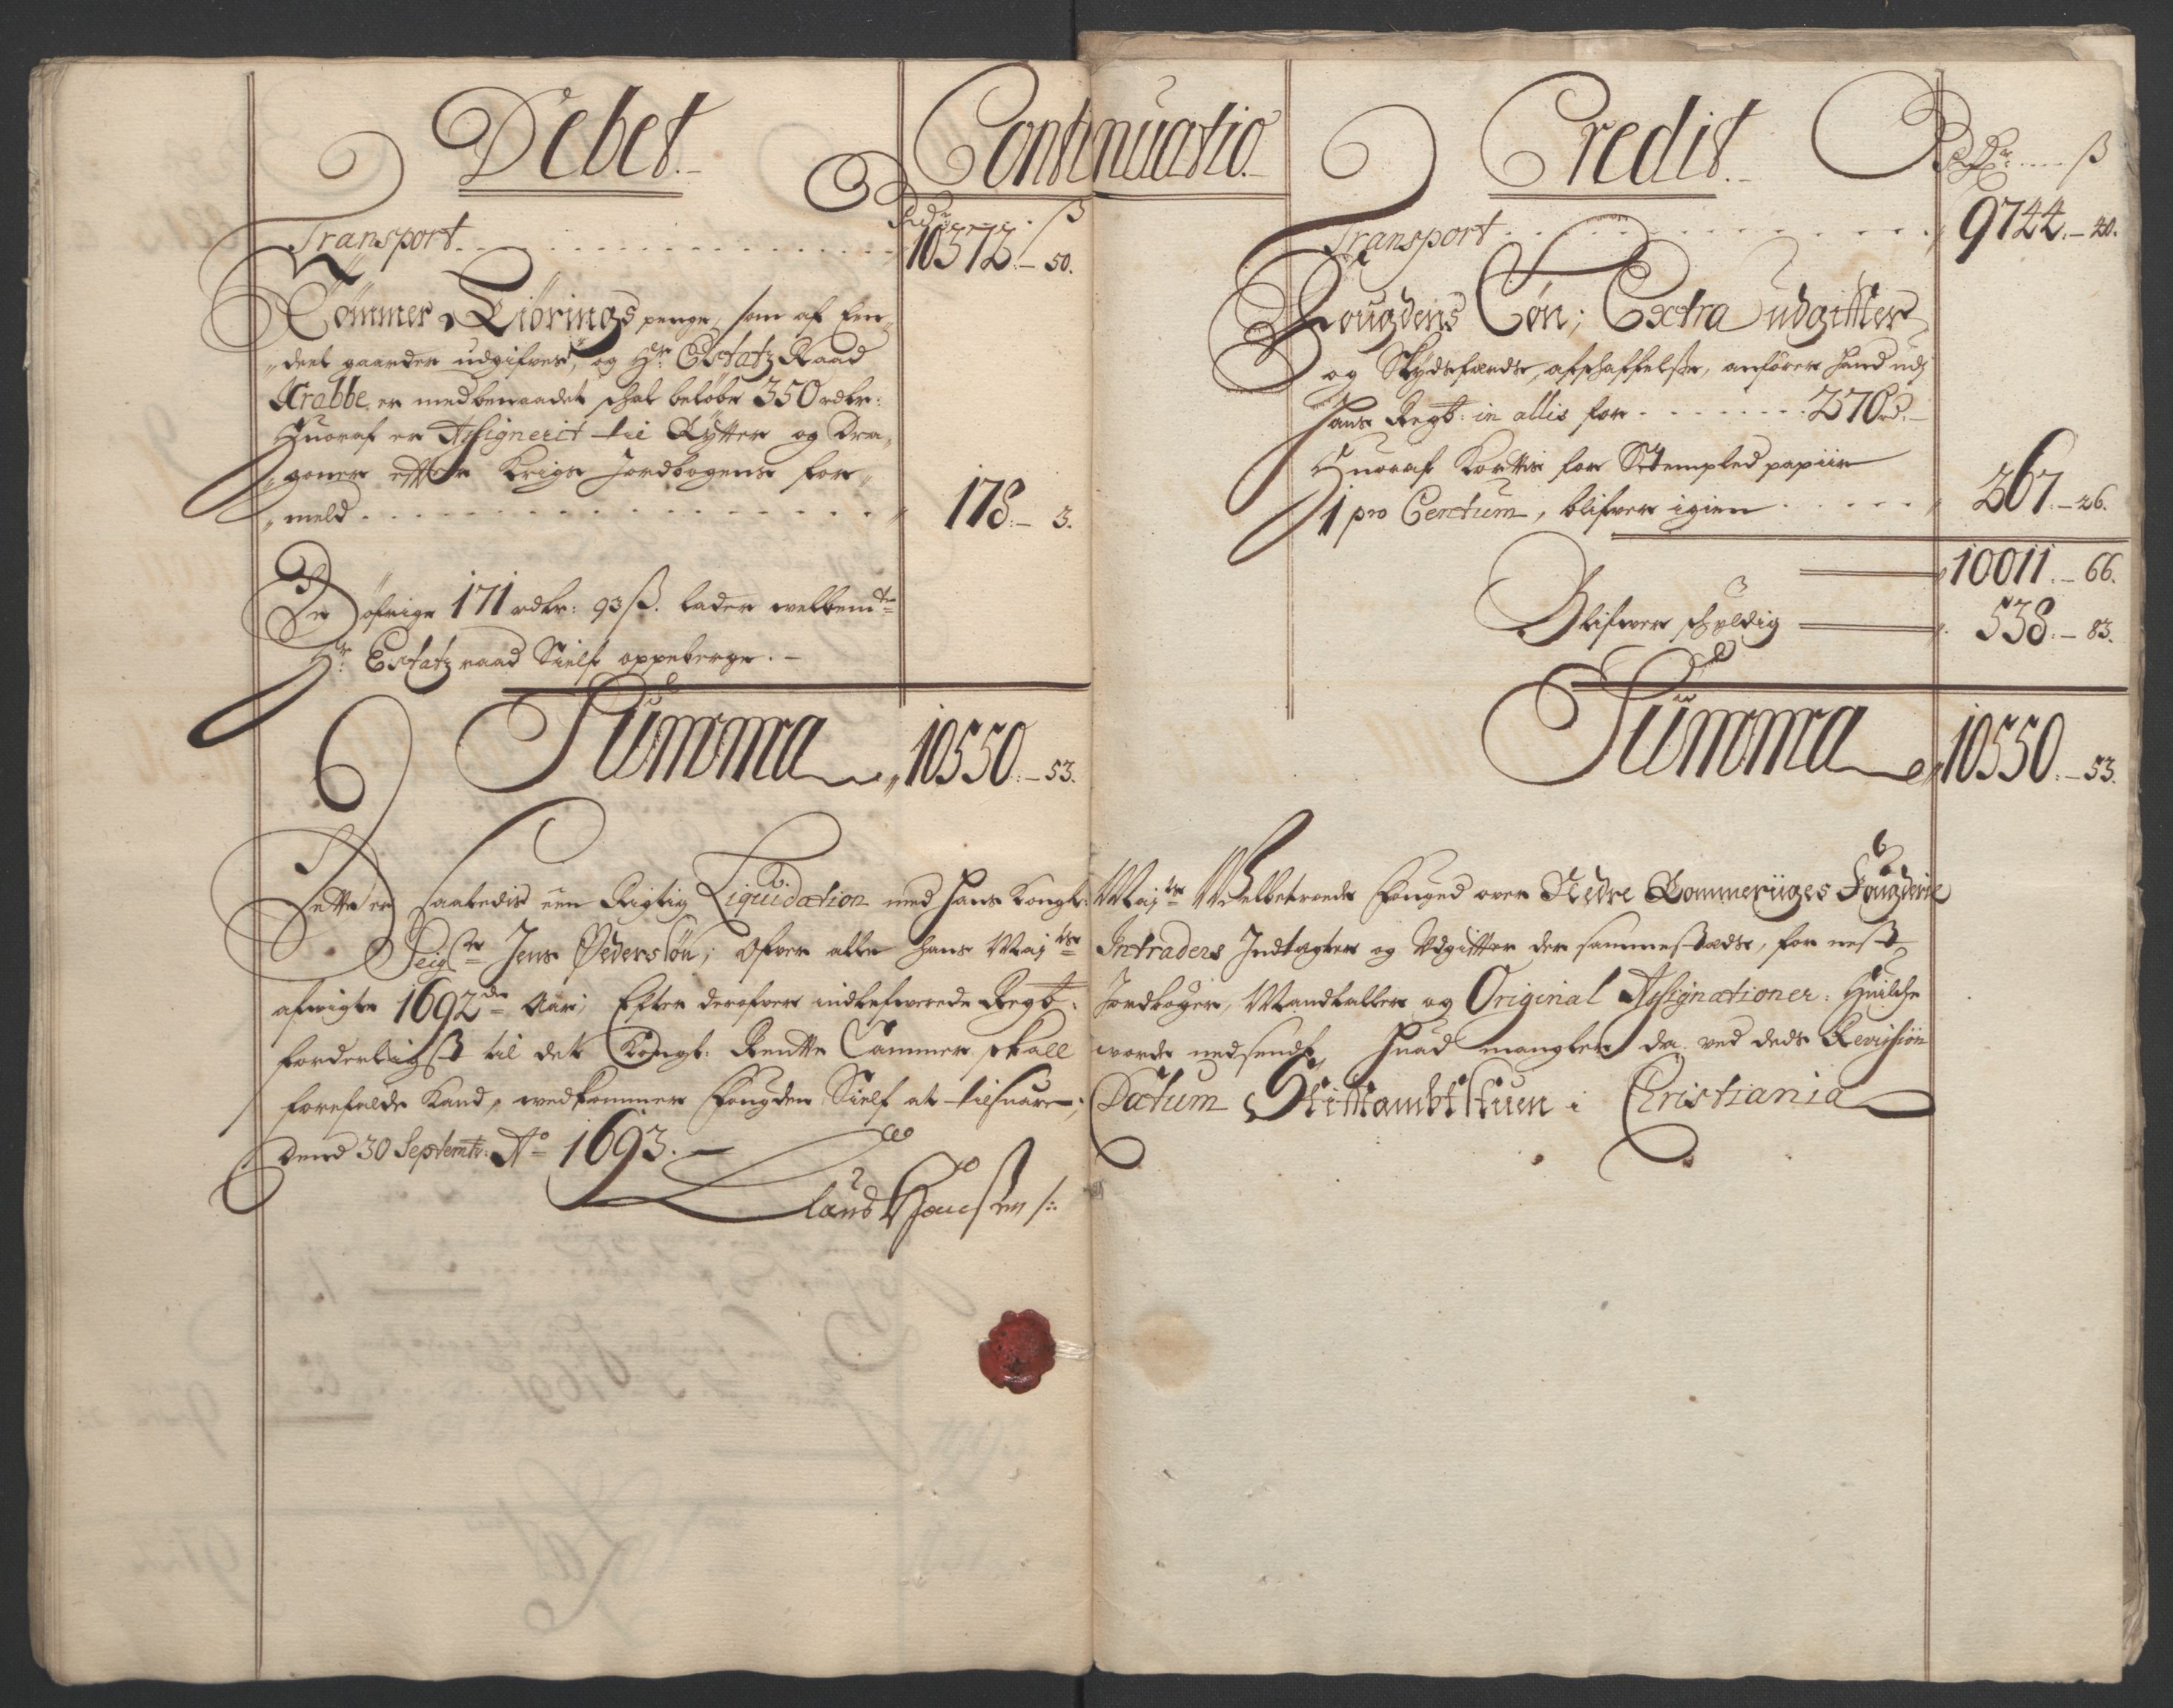 Debet. Continuatio. Credit.
Rdr ß
Transport 10372 – 50.
Tømmer Librings penge, som af Een„
„deel gaarder udgifves, og Hr: Estatz Raad
Krabbe er medbenaadet schal beløbe 350 rdlr:
Huoraf er Assignerit til Rytter og Dra„
„goner efter Krigs Jordbogens for„
„meld 178 – 3.
De øfrige 171 rdlr: 93 ß. lader welbemte
Hr: Estatz raad Sielf oppeberge. –
Summa 10550 – 53.
Rdr ß
Transport 9744 – 40.
Fougdens Løn; Extra udgifter
og Skydsferds afschaffelse, anfører hand udj
hans Regb: in allis for 270 rd. –
Huoraf Kortis for Stempled papiir
1 pro Centum, blifver igien 267 – 26.
10011 – 66.
Blifver schyldig 538 – 83.
Summa 10550 – 53.
Dette er saaledis een Rigtig Liquidation med hans Kongl: Majts Welbetroede Fouged over Nedre Rommeriiges Fougderie
Seigr Jens Pedersøn; Ofver alle hans Majts Intrader Indtagter og Udgifter der sammestæds, for nest
afvigte 1692de Aar; Efter derofver indlefverede Regb: Jordbøger, Mandtaller og Original Assignationer: Huilche
forderligst til det Kongl: Rentte Cammer skall worde nedsendt, Huad mangler da ved deds Revision
forefalde Kand, wedkommer Fougden Sielf at tilsuare; Datum Stiftambtstuen i Christiania
Dend 30 Septembr: Ao 1693. –
Claus Hansen